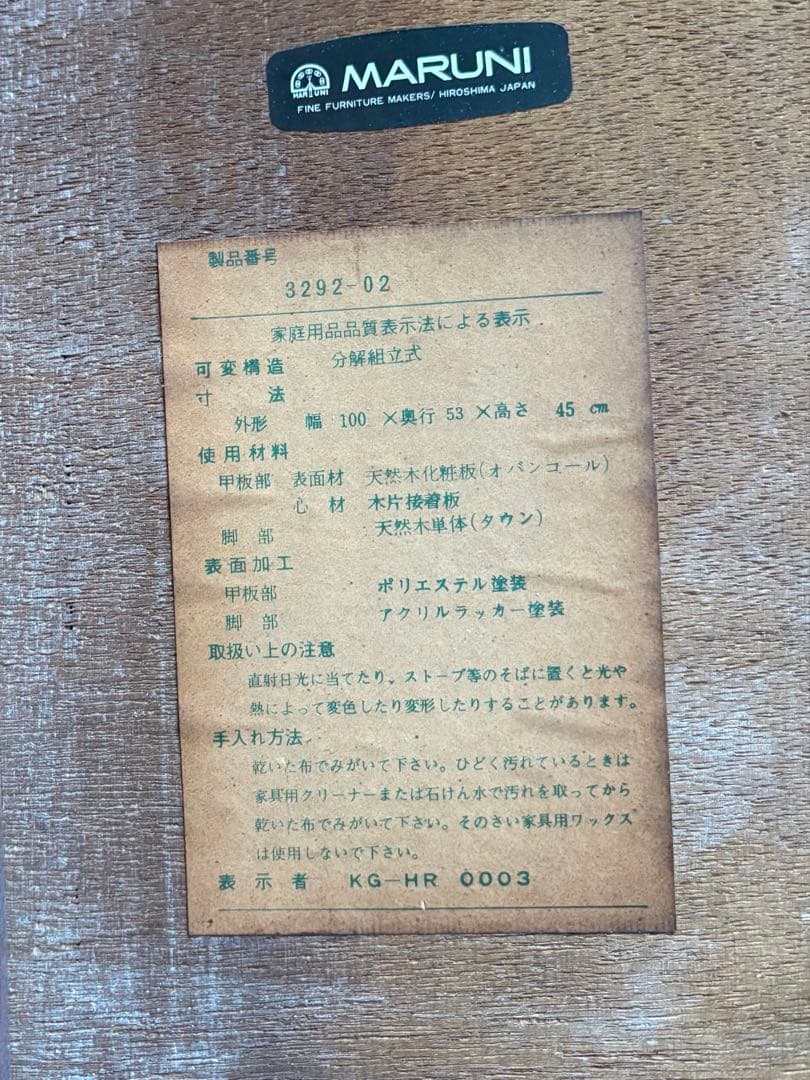 MARUNI
MARUNI
FINE FURNITURE MAKERS/ HIROSHIMA JAPAN
製品番号
3292-02
家庭用品品質表示法による表示
可変構造 分解組立式
寸法
外形 幅 100 ×奥行 53 ×高さ 45 cm
使用材料
甲板部 表面材 天然木化粧板(オバンコール)
心材 木片接着板
脚部 天然木単体(タウン)
表面加工
甲板部 ポリエステル塗装
脚部 アクリルラッカー塗装
取扱い上の注意
直射日光に当てたり、ストーブ等のそばに置くと光や
熱によって変色したり変形したりすることがあります。
手入れ方法
乾いた布でみがいて下さい。ひどく汚れているときは
家具用クリーナーまたは石けん水で汚れを取ってから
乾いた布でみがいて下さい。そのさい家具用ワックス
は使用しないで下さい。
表示者 KG-HR 0003